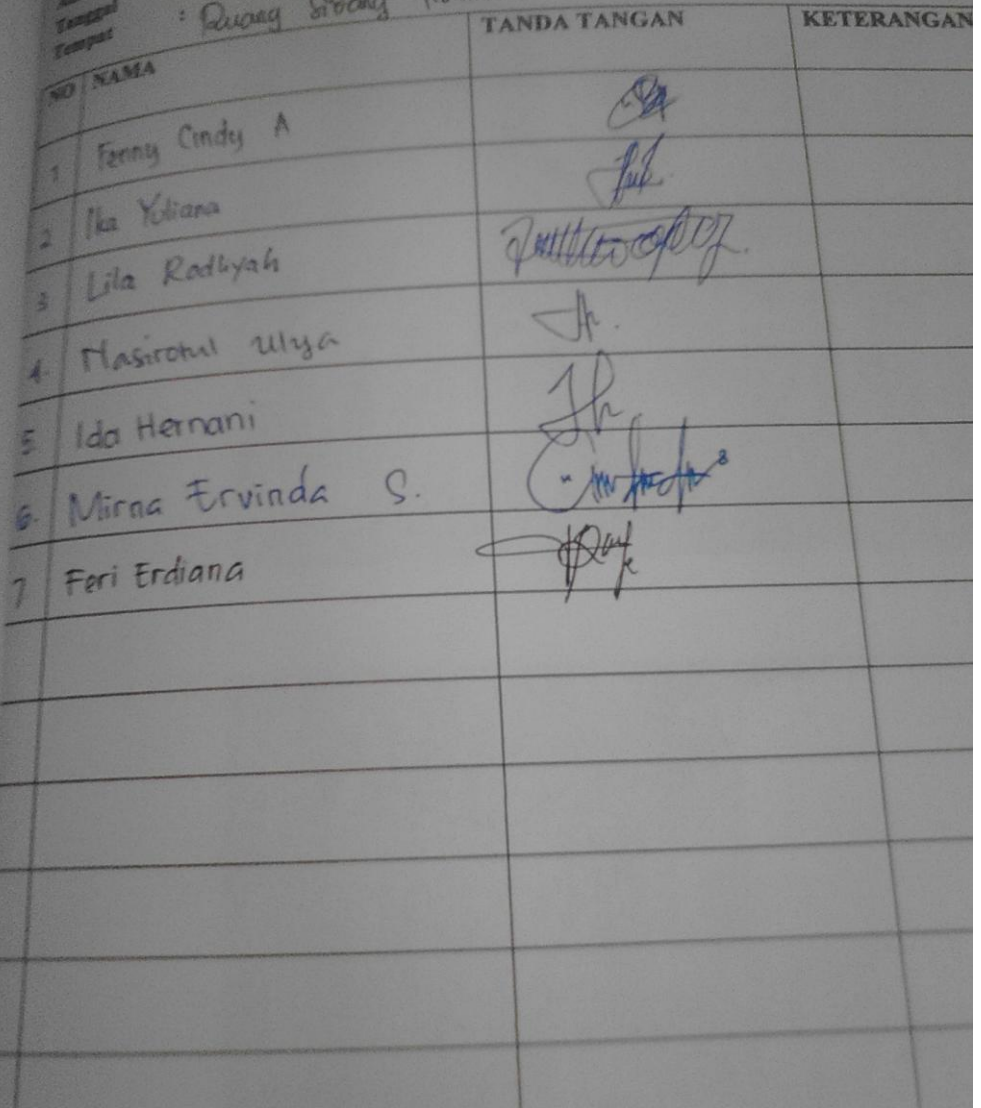 Tanggal
Tempat : Ruang Sidang
NO NAMA TANDA TANGAN KETERANGAN
1 Fenny Cindy A
2 Ika Yuliana
3 Lila Rodhyah
4. Nasirotul Ulya
5 Ida Hernani
6. Mirna Ervinda S.
7 Feri Erdiana